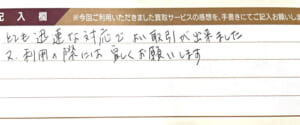 記入欄 ※今回ご利用いただきました買取サービスの感想を、手書きにてご記入お願いしま
とても迅速な対応で良い取引が出来ました
又、利用の際には宜しくお願いします